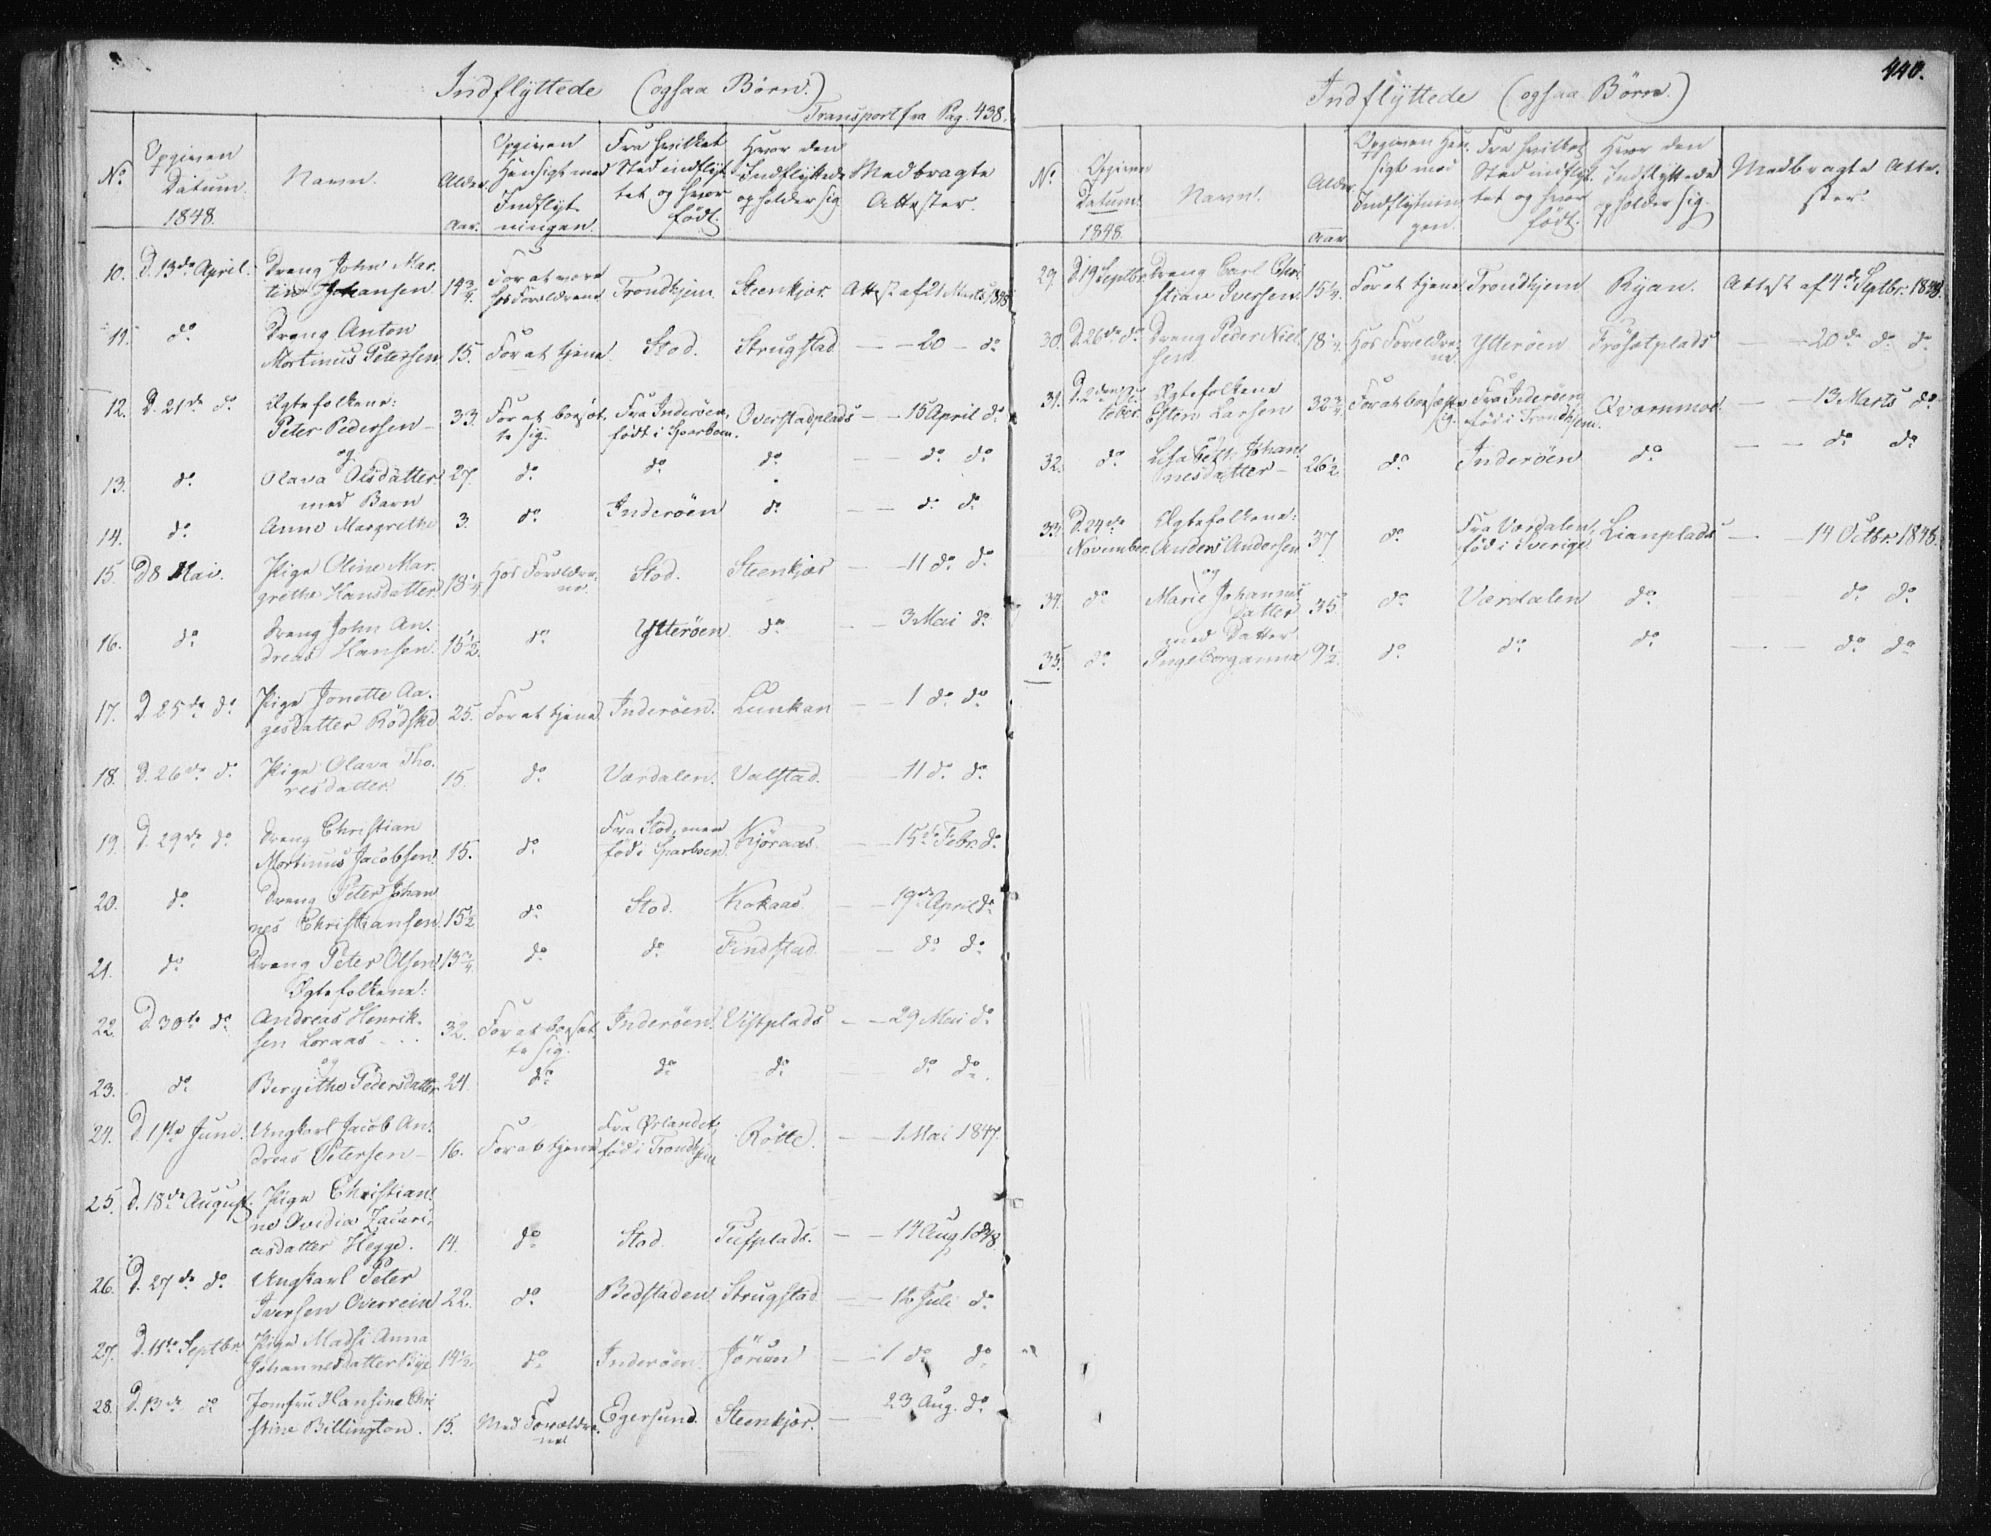 Indflyttede (ogsaa Børn.)
Transport fra Pag. 438.
No. Opgiven Datum. 1848. Navn. Alder. Aar. Opgiven Hensigt med Indflytningen. Fra hvilket Sted indflyttet og hvor født. Hvor den Indflyttede opholder sig Medbragte Attester.
10. D. 13de April. Dreng John Martin Johansen 14 3/4. For at være hos Forældrene Trondhjem Steenkjær. Attest af 21 Marts 1848
11. do Dreng Anton Mortinus Petersen 15. For at tjene. Stod. Strugstad — — 20 — do
12. D. 21de do. Ægtefolkene: Peter Pedersen — 33. For at bosætte sig. Fra Inderøen, født i Sparboen. Overstadplads — — 15 April do
og
13. do. Olava Olsdatter 27. do. do. do. — — do do
med Barn
14. do. Anne Margrethe 3. do. Inderöen do. — — do. do
15. D 8 Mai. Pige Oline Margrethe Hansdatter 18 1/4. Hos Forældrene. Stod. Steenkjær — — 11 do. do.
16. do. Dreng John Andreas Hansen. 15 1/2. do. Ytterøen. do. — — 3 Mai do
17. D 25de do. Pige Jonette Aagesdatter Rödske 25. For at tjene. Inderöen. Lunkan — — 1 do. do.
18. D. 26de do. Pige Olava Thoresdatter 15. do. Værdalen. Valstad. — — 11 do. do.
19. D. 29de do Dreng Christian Mortinus Jacobsen 15. do. Fra Stod, men föd i Sparboen. Kjöraas. — — 15de Febr. do
20. do. Dreng Peter Johannes Christiansen 15 1/2 do. Stod. Kokaas. — — 19de April do
21. do. Dreng Peter Olsen 13 3/4. do. do. Findstad — — do. do.
Ægtefolkene:
22. D. 30te do. Andreas Henriksen Loraas . . 32. For at bosætte sig. Inderöen. Vistplads — — 29 Mai do
og
23. do. Bergithe Pedersdatter 24. do. do. do. — do. do.
24. D. 1ste Juni. Ungkarl Jacob Andreas Petersen — 16. For at tjene Fra Ørlandet, föd i Trondhjem Rötte. — — 1 Mai 1847.
25. D. 18de August. Pige Christianne Ovidia Zacariasdatter Hegge. 14. do. Stod. Tufplads. — — 14 Aug. 1848
26. D. 27de do. Ungkarl Peter Iversen Overrein 22. do. Bedstaden Strugstad — — 14 Juli do.
27. D. 11te Septbr. Pige Madsi Anna Johannesdatter Bye 14 1/2. do. Inderöen. Jörum — — 1 do do.
28. D. 13de do Jomfru Hansine Christine Billington. 15. Med Forældrene Egersund. Steenkjær. — 23 Aug. do
440.
Indflyttede (ogsaa Børn.)
No. Opgiven Datum. 1848. Navn. Alder. Aar Opgiven Hensigt med Indflytningen. Fra hvilket Sted indflyttet og hvor født. Hvor den Indflyttede opholder sig. Medbragte Attester.
29. D. 19 Septbr. Dreng Carl Christian Iversen 15 1/4. For at tjene. Trondhjem Ryan. Attest af 4de Septbr. 1848.
30. D. 26de do Dreng Peder Nielsen 18 1/4. Hos Forældrene Ytterøen Frösetplads — — 20de do. do.
31. D. 2den Octobr. Ægtefolkene Östen Larsen 32 3/4 For at bosætte sig. Fra Inderøen föd i Trondhjem. Qvarnmoe. — — 13 Marts do.
og
32. do. Lisabeth Johannesdatter — 26 1/2 do. Inderöen do. — — do. do.
33. D. 24de November. Ægtefolkene: Anders Andersen 37 do. Fra Værdalen, föd i Sverige Lianplads — — 14 Octbr. 1848.
og
34. do. Marie Johannisdatter 35 do. Værdalen do. — do. do.
med Datter
35. do. Ingeborganna 9 1/2. do. do. do. — — do. do.